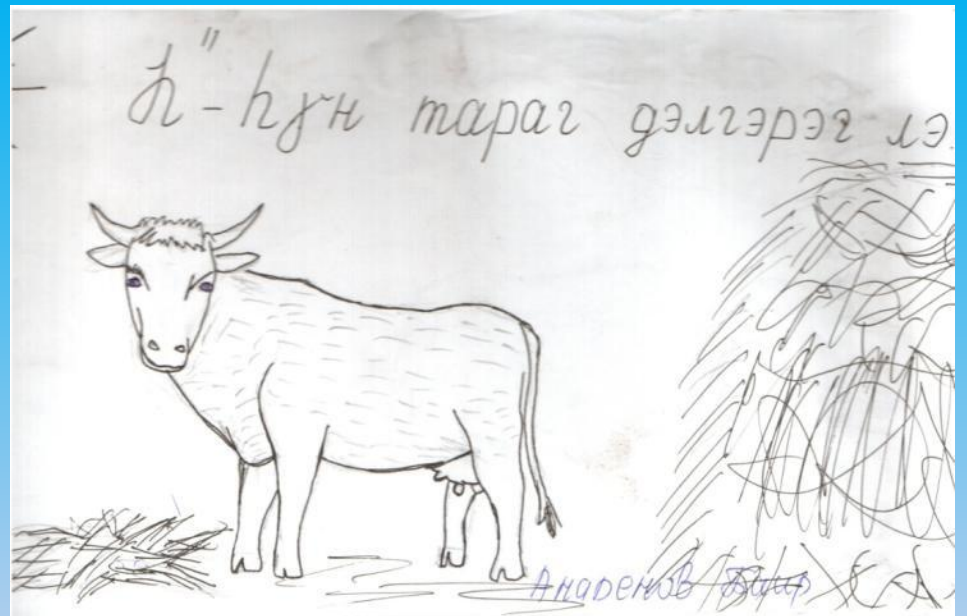 Һ" - һүн тараг дэлгэрэг лэ
Анаренов Баир